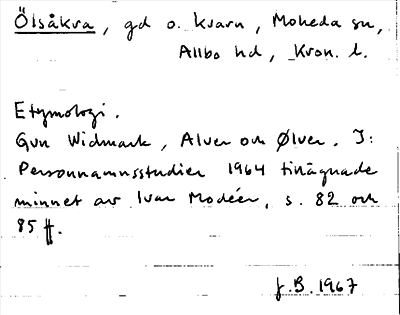 Ölsåkra, gd o. kvarn, Moheda sn,
Allbo hd, Kron. l.
Etymologi.
Gun Widmark, Alver och Ølver. I:
Personnamnsstudier 1964 tillägnade
minnet av Ivar Modéer, s. 82 och
85 ff.
J.B. 1967